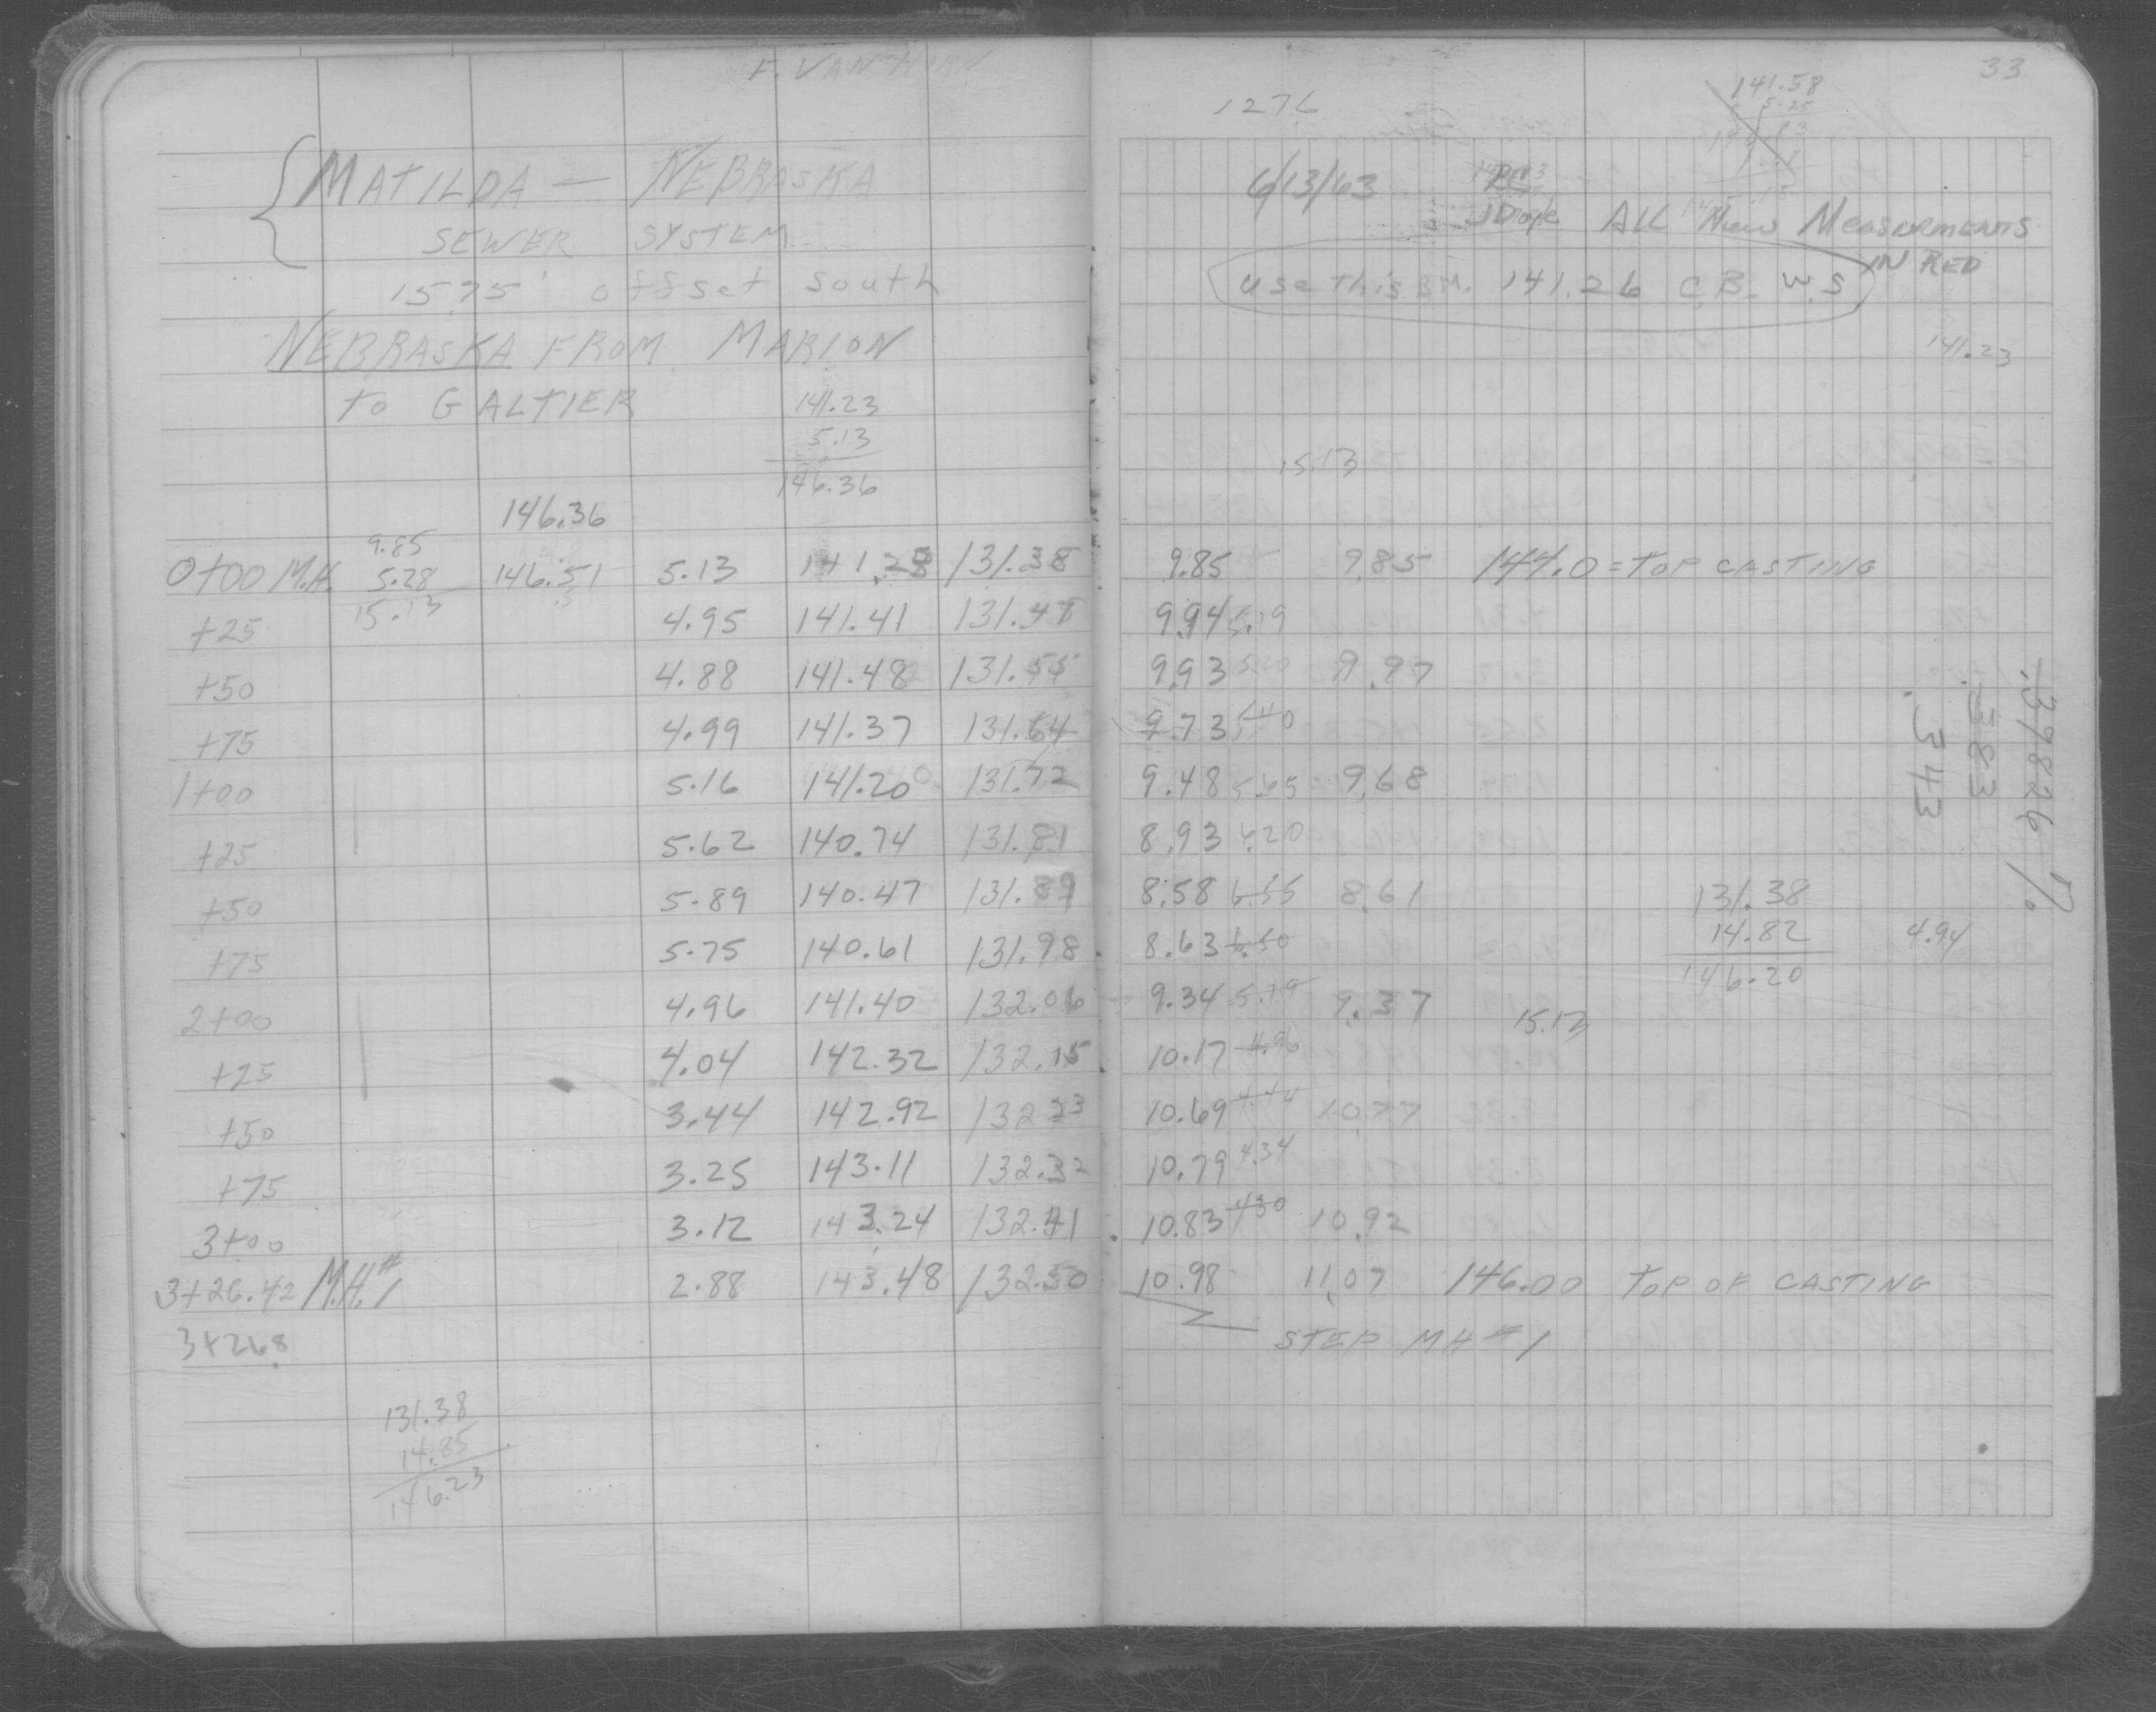 F. VAN HORN
MATILDA — NEBRASKA
SEWER SYSTEM
15.75' offset South
NEBRASKA FROM MARION
to GALTIER
141.23
5.13
146.36
146.36
9.85
0+00 M.H. 5.28 146.51 5.13 141.23 131.38
15.13
+25 4.95 141.41 131.47
+50 4.88 141.48 131.55
+75 4.99 141.37 131.64
1+00 5.16 141.20 131.72
+25 5.62 140.74 131.81
+50 5.89 140.47 131.89
+75 5.75 140.61 131.98
2+00 4.96 141.40 132.06
+25 4.04 142.32 132.15
+50 3.44 142.92 132.23
+75 3.25 143.11 132.32
3+00 3.12 143.24 132.41
3+26.42 M.H.#1 2.88 143.48 132.50
3+268
131.38
14.85
146.23
33
1276
141.58
5.25
6/13/63
ALL New MEASURMENTS
IN RED
use this B.M. 141.26 C.B. W.S
141.23
15.13
9.85 9.85 144.0 = TOP CASTING
9.94 5.19
9.93 5.20 9.97
9.73 5.40
9.48 5.65 9.68
8.93 6.20
8.58 6.55 8.61
8.63 6.50
9.34 5.79 9.37
10.17 4.96
10.69 4.44 10.77
10.79 4.34
10.83 4.30 10.92
10.98 11.07 146.00 TOP OF CASTING
STEP MH #1
131.38
14.82
146.20
4.94
15.13
.39826 %
.383
.343